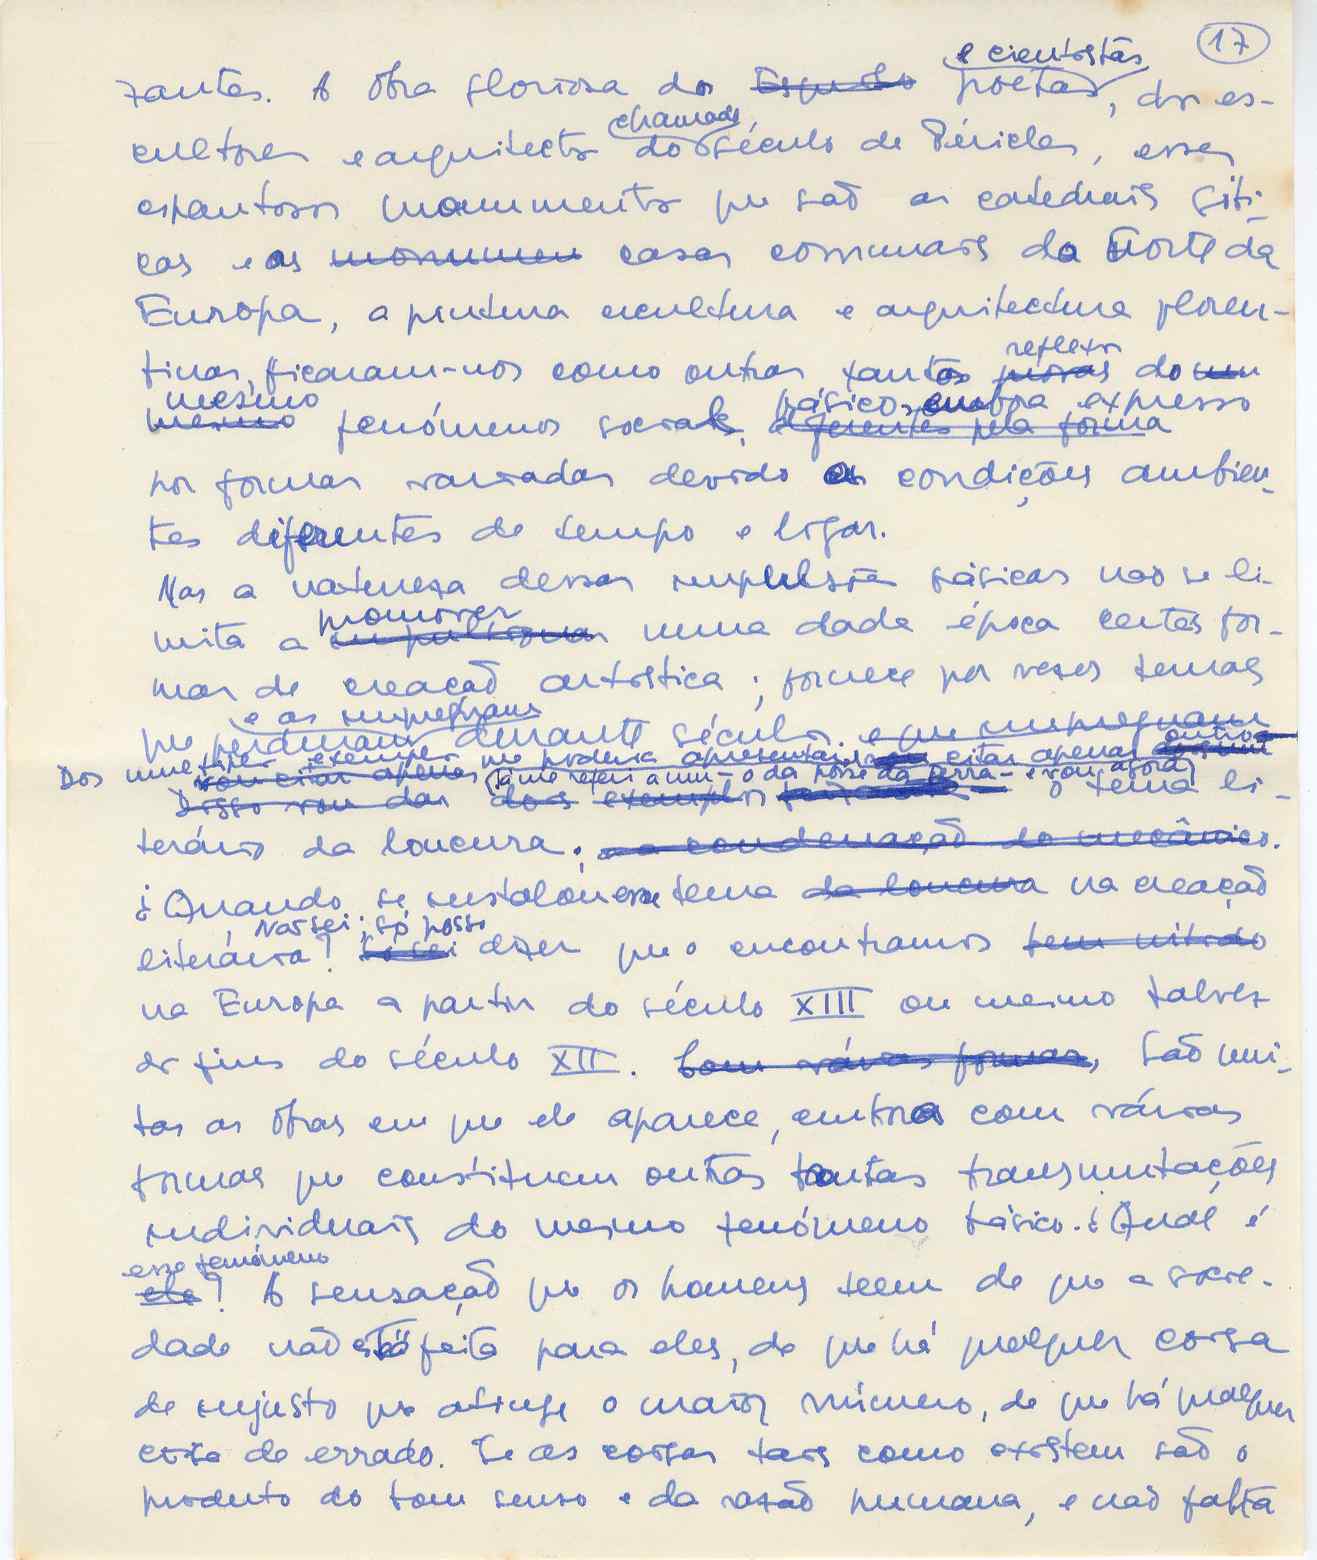 17
e cientistas
zantes. A obra gloriosa dos Espirito poetas, dos es-
chamado
cultores e arquitectos do século de Péricles, esses
espantosos monumentos que são as catedrais góti-
cas e as monumen casas comunais do Norte da
Europa, a pintura escultura e arquitectura floren-
reflexos
tinas, ficaram-nos como outros tantos provas do um
mesmo básico, embora expresso
mesmo fenómeno social, diferentes pela forma
por formas variadas devido a condições ambien-
tes diferentes de tempo e lugar.
Mas a natureza dessas impulsões básicas não se li-
promover
mita a impulsionar numa dada época certas for-
mas de creação artística; fornece por vezes temas
e as impregnam
que perduram durante séculos. e que impregnam
Dos inumeráveis exemplos que poderia apresentar, vou citar apenas outro
vou citar apenas (já me referi a um — o da posse da terra — e vou agora)
Disso vou dar dois exemplos o tema li-
terário da loucura. a condenação do mecânico.
¿Quando se instalou esse tema da loucura na creação
Não sei; só posso
literária? Só sei dizer que o encontramos bem nitido
na Europa a partir do século XIII ou mesmo talvez
dos fins do século XII. Com várias formas, São mui-
tas as obras em que ele aparece, embora com várias
formas que constituem outras tantas transmutações
individuais do mesmo fenómeno básico. ¿Qual é
esse fenómeno
ele? A sensação que os homens teem de que a socie-
dade não está feita para eles, de que há qualquer coisa
de injusto que atinge o maior número, de que há qualquer
coisa de errado. Se as coisas tais como existem são o
produto do bom senso e da razão humana, e não falta